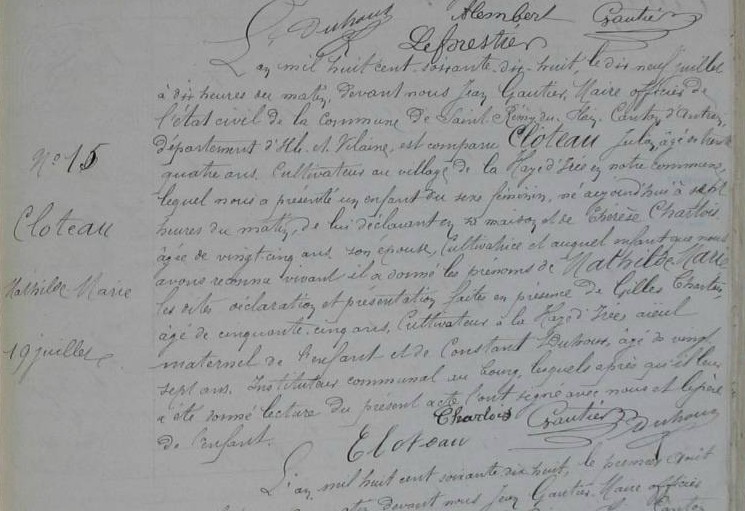 Duhoux Alembert Gautier
Leprestier
L'an mil huit cent soixante dix-huit, le dix neuf juillet
à dix heures du matin, devant nous Jean Gautier, Maire officier de
l'état civil de la commune de Saint Rémy du Plain, Canton d'Antrain,
département d'Ille et Vilaine, est comparu Cloteau Julien âgé de trente
N° 15
quatre ans, Cultivateur au village de la Haye d'Irée en notre commune,
lequel nous a présenté un enfant du sexe féminin, né aujourd'hui à sept
Cloteau
heures du matin, de lui déclarant en sa maison et de Thérèse Charlois
âgée de vingt cinq ans, son épouse, Cultivatrice et auquel enfant que nous
Mathilde Marie
avons reconnu vivant il a donné les prénoms de Mathilde Marie
les dites déclaration et présentation faites en présence de Gilles Charlois,
âgé de cinquante cinq ans, Cultivateur à la Haye d'Irée aïeul
19 juillet
maternel de l'enfant et de Constant Duhoux, âgé de vingt
sept ans, Instituteur communal au bourg, lesquels après qu'il leur
a été donné lecture du présent acte l'ont signé avec nous et le père
de l'enfant. Charlois Gautier Duhoux
Cloteau
L'an mil huit cent soixante dix huit, le premier août
devant nous Jean Gautier, Maire officier